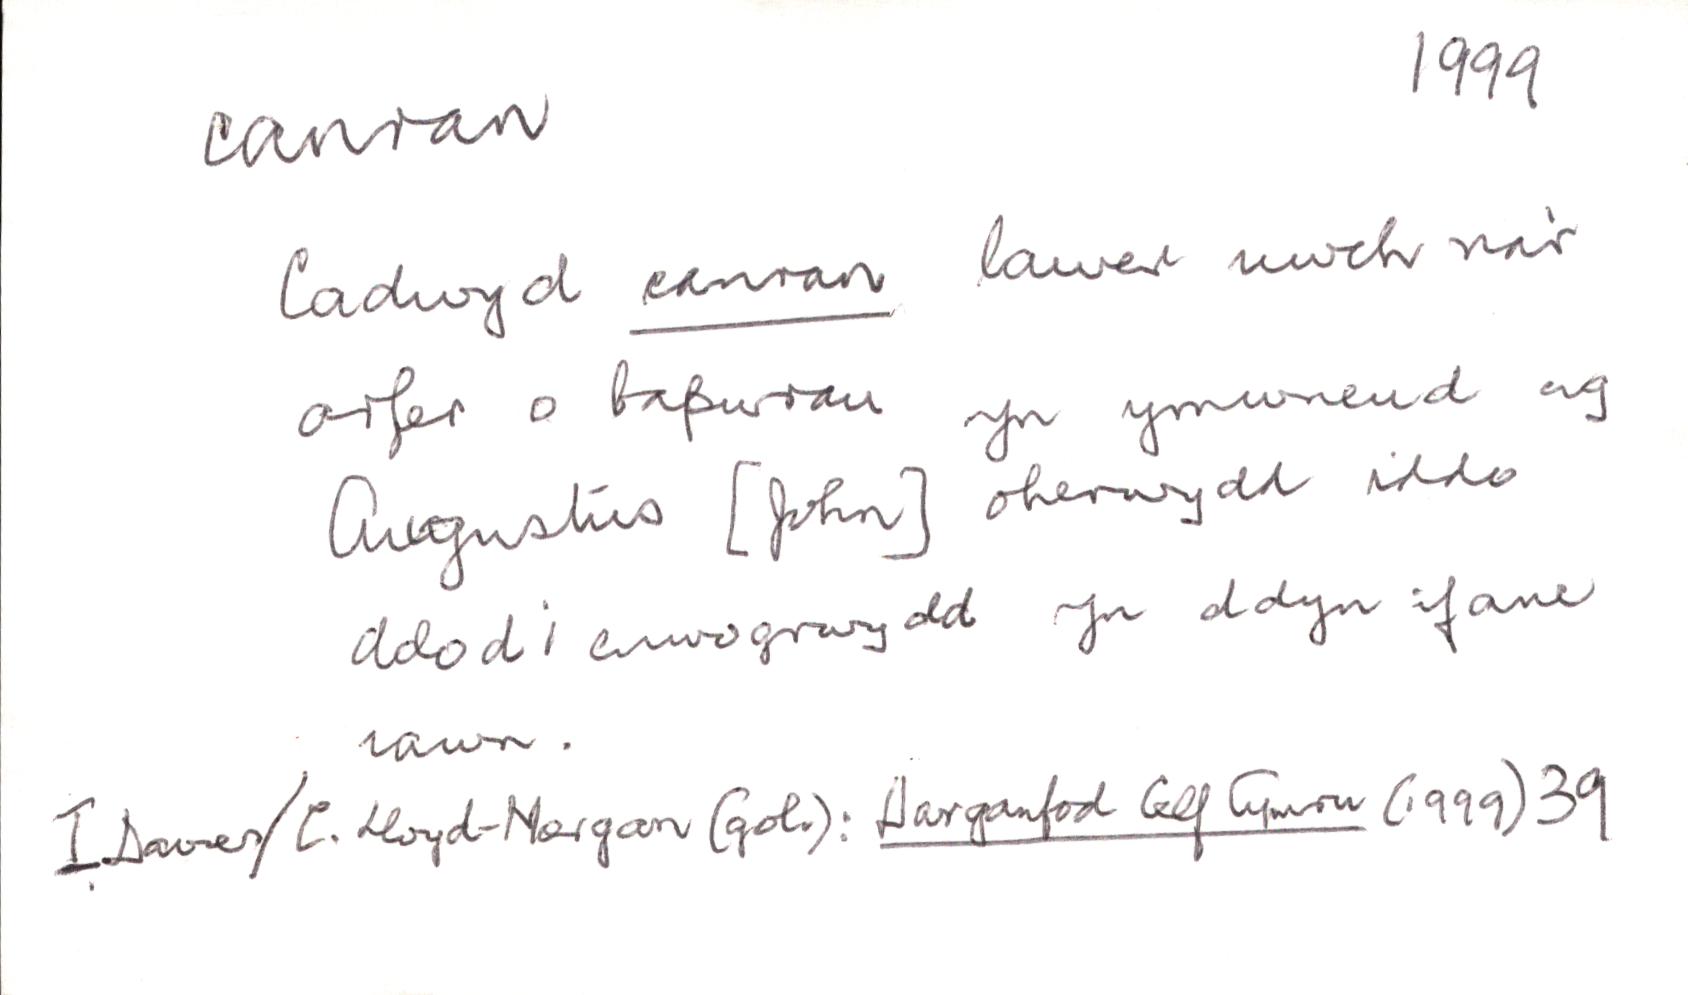 1999
canran
Cadwyd canran lawer uwch na'r
arfer o bapurau yn ymwneud ag
Augustus [John] oherwydd iddo
ddod i enwogrwydd yn ddyn ifanc
iawn.
I. Davies/C. Lloyd-Morgan (gol.): Darganfod Celf Cymru (1999) 39